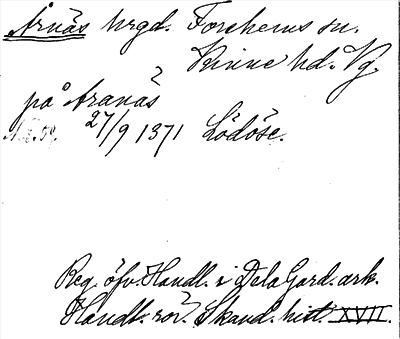 Årnäs hrgd. Forshems sn.
Kinne hd. Vg.
på Aranäs
27/9 1371 Lödöse.
Reg. öfv. Handl. i Dela Gard. ark.
Handl. rör. Skand. hist. XVII.